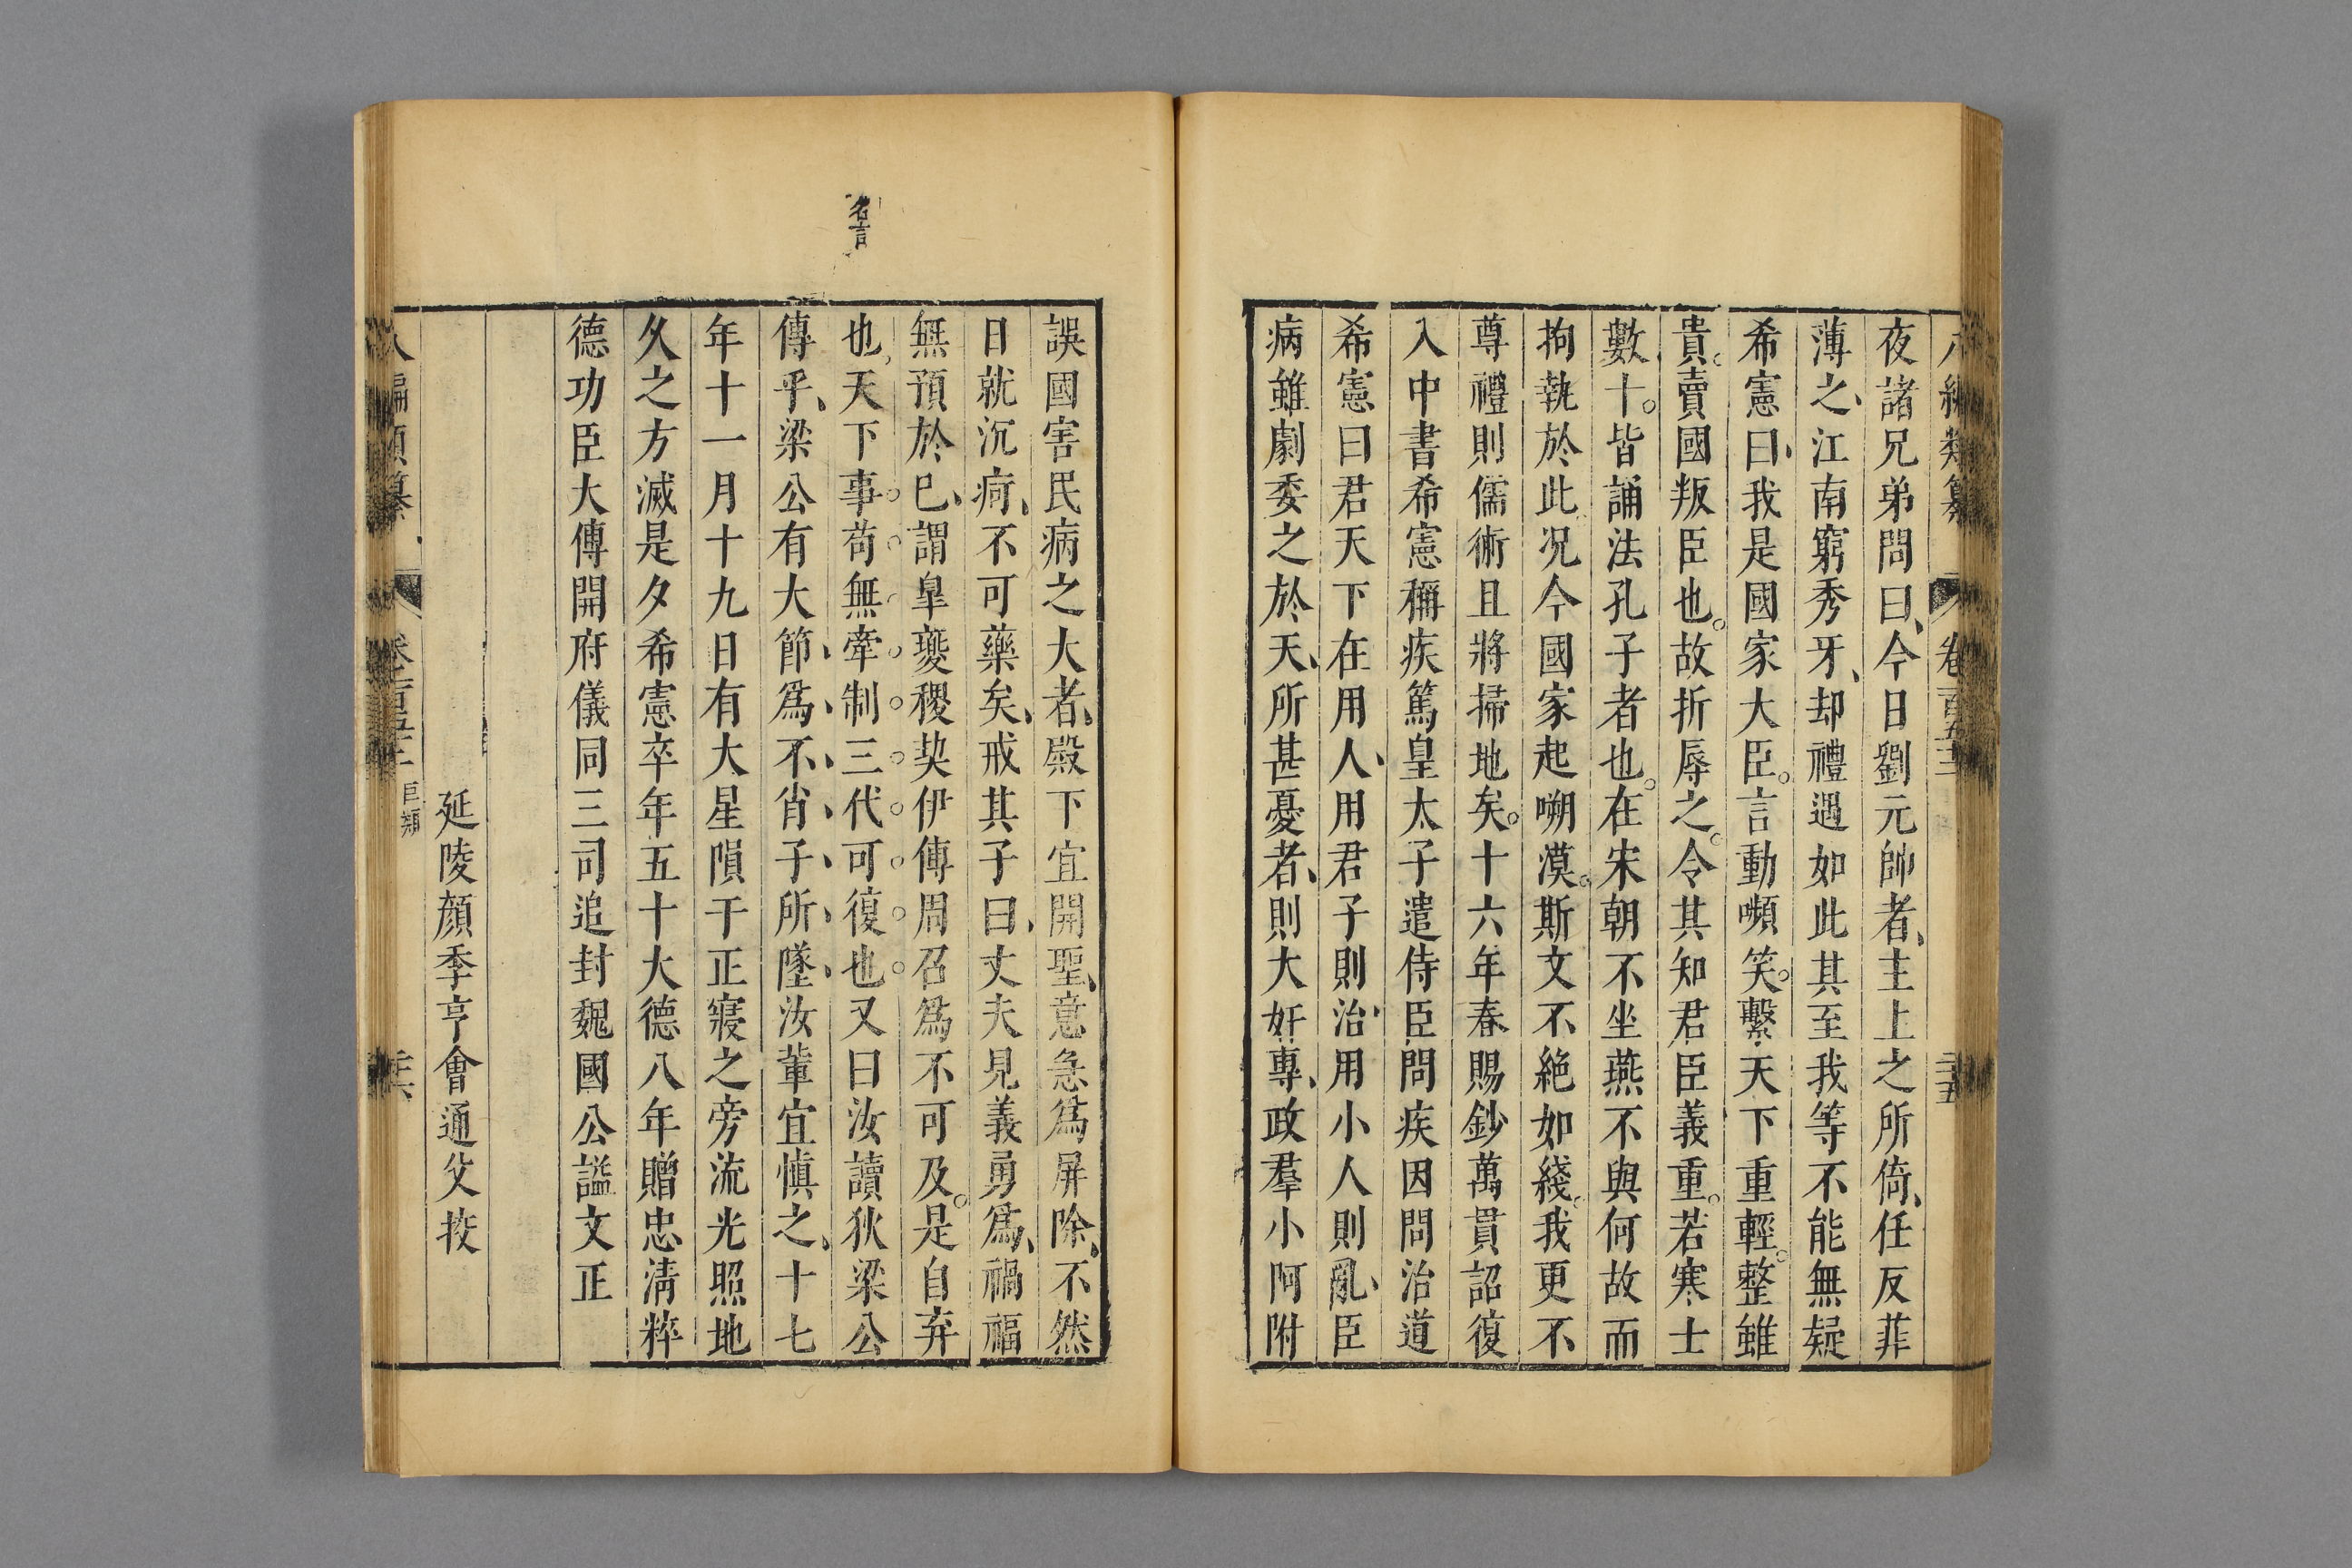 夜諸兄弟問曰今日劉元帥者主上之所倚任反菲
薄之江南窮秀牙却禮遇如此其至我等不能無疑
希憲曰我是國家大臣言動嚬笑繫天下重輕整雖
貴賣國叛臣也故折辱之令其知君臣義重若寒士
數十皆誦法孔子者也在宋朝不坐燕不與何故而
拘執於此況今國家起朔漠斯文不絶如綫我更不
尊禮則儒術且將掃地矣十六年春賜鈔萬貫詔復
入中書希憲稱疾篤皇太子遣侍臣問疾因問治道
希憲曰君天下在用人用君子則治用小人則亂臣
病雖劇委之於天所甚憂者則大奸專政羣小阿附
誤國害民病之大者殿下宜開聖意急爲屏除不然
日就沉痾不可藥矣戒其子曰丈夫見義勇爲禍福
無預於已謂皐夔稷契伊傅周召爲不可及是自弃
也天下事苟無牽制三代可復也又曰汝讀狄梁公
傳乎梁公有大節爲不肖子所墜汝輩宜愼之十七
年十一月十九日有大星隕于正寢之旁流光照地
久之方滅是夕希憲卒年五十大德八年贈忠淸粹
德功臣大傅開府儀同三司追封魏國公謚文正
延陵顏季亨會通父挍
名言
卷
臣類